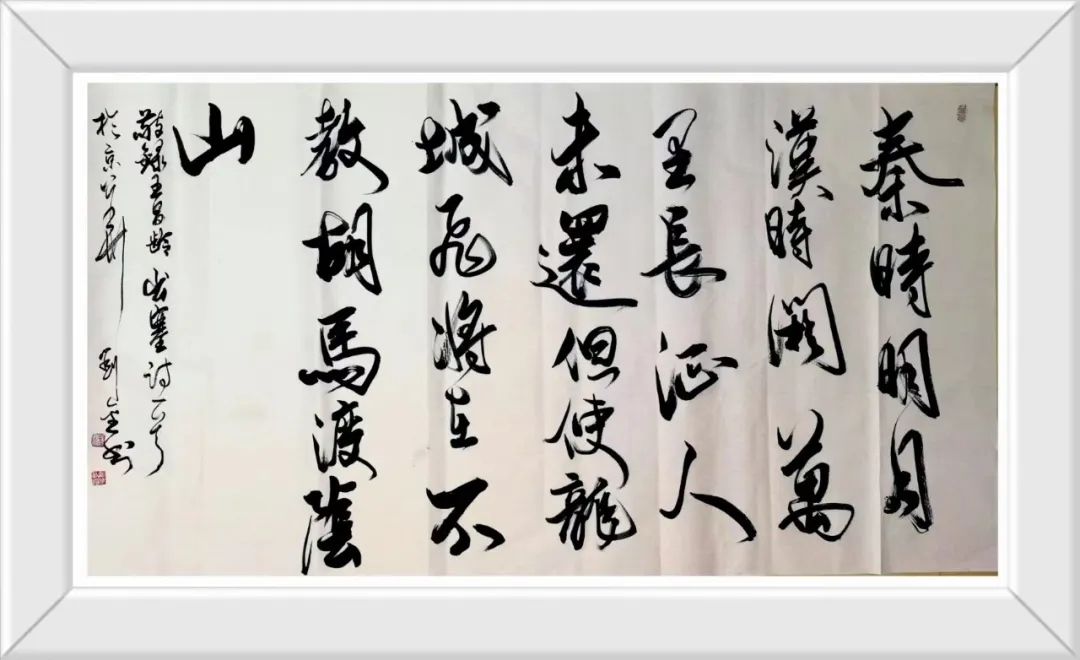 秦時明月
漢時關萬
里長征人
未還但使龍
城飛將在不
教胡馬渡陰
山
敬錄王昌齡出塞詩一首
於京 劉金